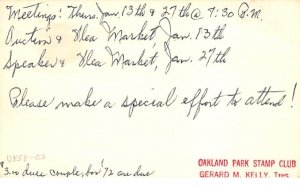 Meetings: Thurs. Jan. 13th & 27th @ 7:30 P.M.
Auction & Flea Market, Jan. 13th
Speaker & Flea Market, Jan. 27th
Please make a special effort to attend!
OAKLAND PARK STAMP CLUB
$3.00 dues couple, for '72 are due
GERARD M. KELLY, Tres.